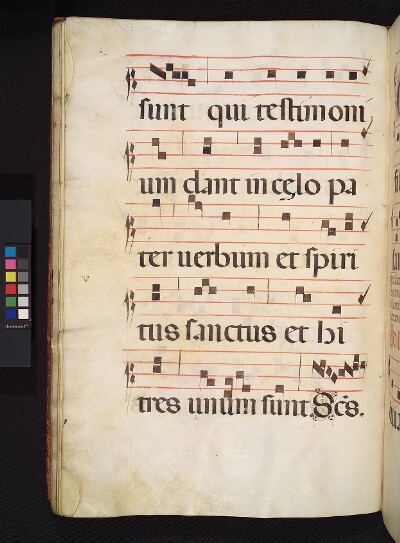 sunt qui testimoni
um dant in cęlo pa
ter uerbum et spiri
tus sanctus et hi
tres unum sunt Scs.